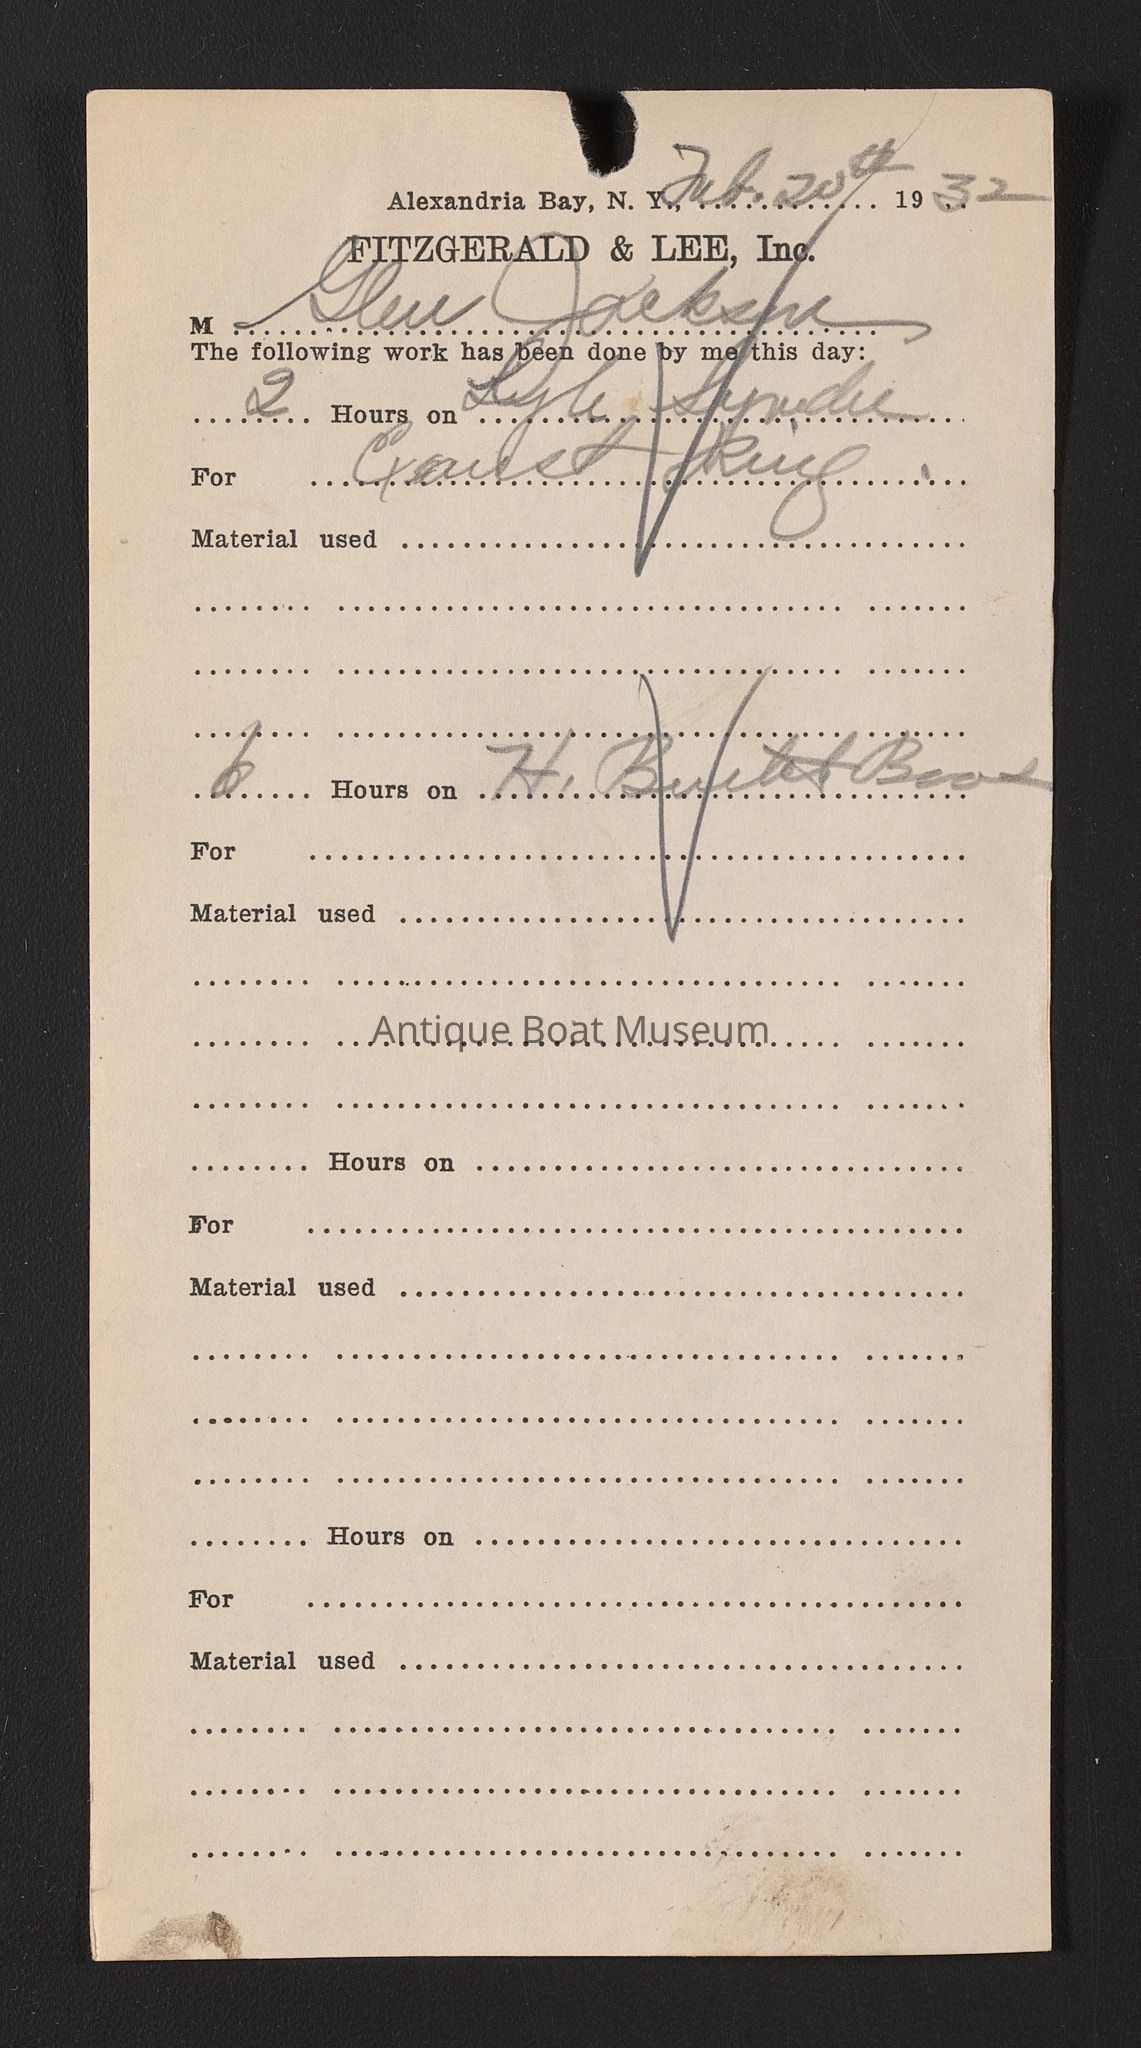 Alexandria Bay, N. Y., Feb. 20th 1932
FITZGERALD & LEE, Inc.
M Glen Jackson
The following work has been done by me this day:
2 Hours on Lyle
For Ernest King
Material used
6 Hours on H. Boat
For
Material used
Antique Boat Museum
Hours on
For
Material used
Hours on
For
Material used